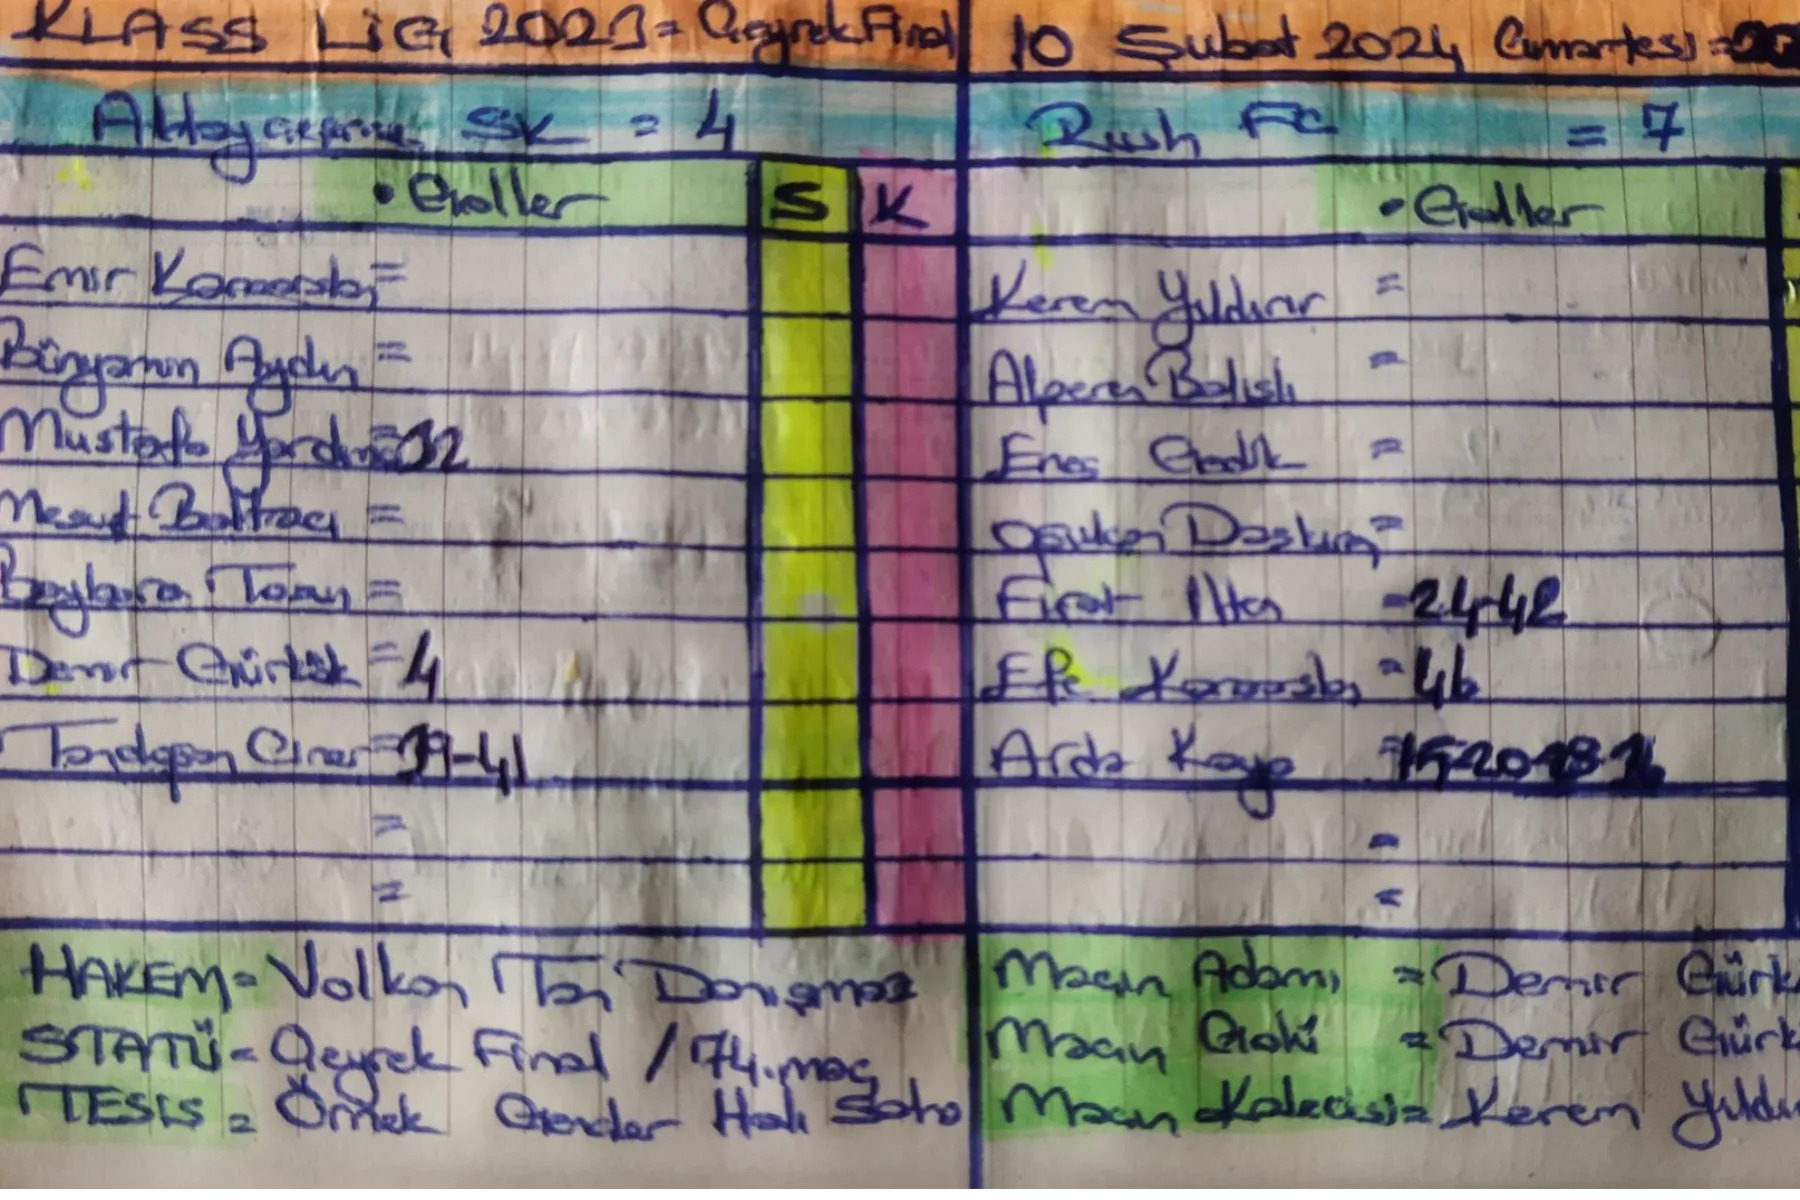 KLASS LİG 2023 = Çeyrek Final
10 Şubat 2024 Cumartesi =
SK = 4
Rush FC = 7
• Goller S K
• Goller
Emir Karaaslan =
Bünyamin Aydın =
Mustafa Yardım = 32
Mesut Baltacı =
Baybora =
Demir Gürkök = 4
Tandoğan Çınar = 39-41
=
=
Kerem Yıldırır =
Alperen Balıslı =
Enes Gedik =
Daştan =
Fırat İlter = 24-42
Efe Karaaslan = 46
Arda Kaya =
=
=
HAKEM = Volkan Tan Danışmaz
STATÜ = Çeyrek Final / 74. maç
TESİS = Örnek Halı Saha
Maçın Adamı = Demir Gürk
Maçın Golü = Demir Gürk
Maçın Kalecisi = Kerem Yıldı